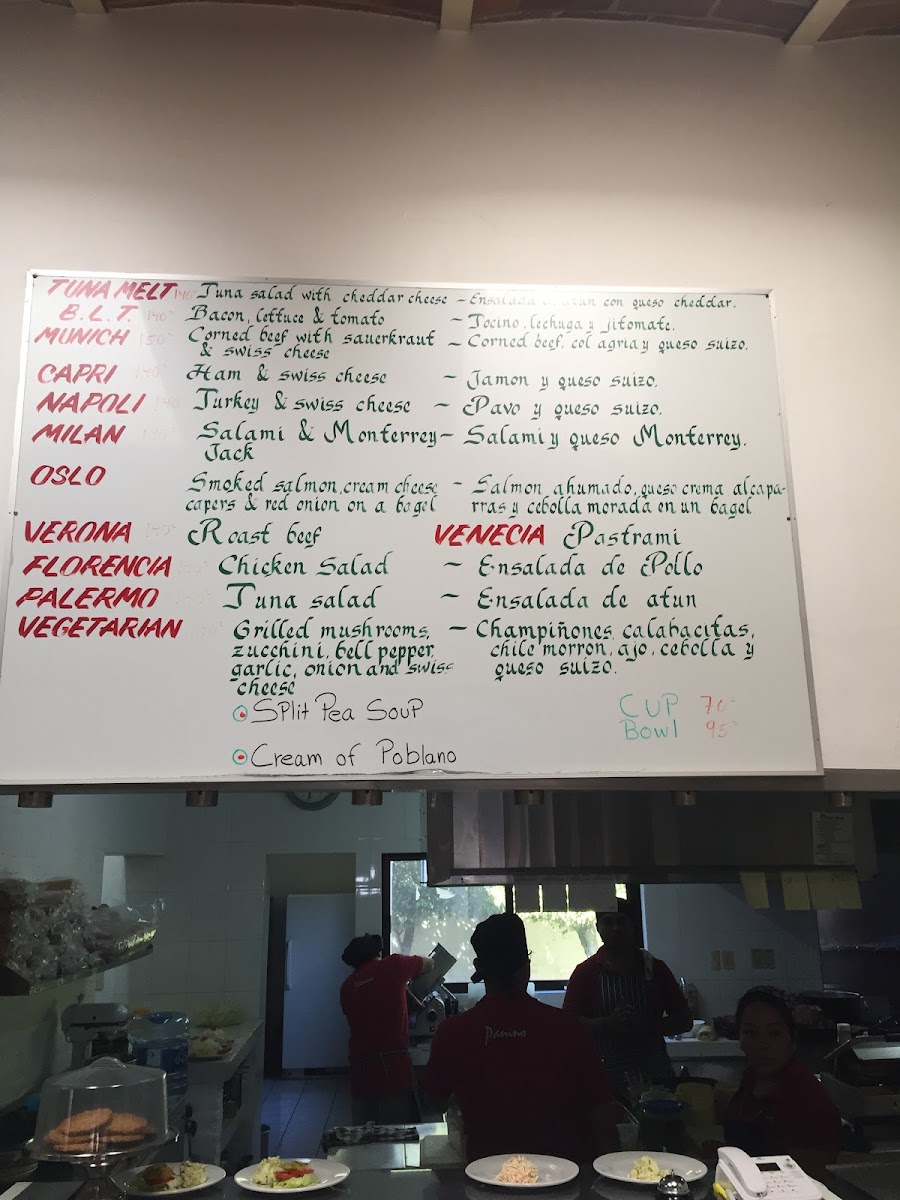 TUNA MELT 140 Tuna salad with cheddar cheese - Ensalada de atun con queso cheddar.
B.L.T. 140 Bacon, lettuce & tomato - Tocino, lechuga y jitomate.
MUNICH 150 Corned beef with sauerkraut & swiss cheese - Corned beef, col agria y queso suizo.
CAPRI 140 Ham & swiss cheese - Jamon y queso suizo.
NAPOLI 140 Turkey & swiss cheese - Pavo y queso suizo.
MILAN Salami & Monterrey - Salami y queso Monterrey.
Jack
OSLO Smoked salmon, cream cheese - Salmon ahumado, queso crema, alcapa-
capers & red onion on a bagel rras y cebolla morada en un bagel
VERONA 140 Roast beef VENECIA Pastrami
FLORENCIA Chicken Salad - Ensalada de Pollo
PALERMO Tuna salad - Ensalada de atun
VEGETARIAN Grilled mushrooms, - Champiñones, calabacitas,
zucchini, bell pepper, chile morron, ajo, cebolla y
garlic, onion and swiss queso suizo.
cheese
Split Pea Soup CUP 70
Bowl 95
Cream of Poblano
Panino